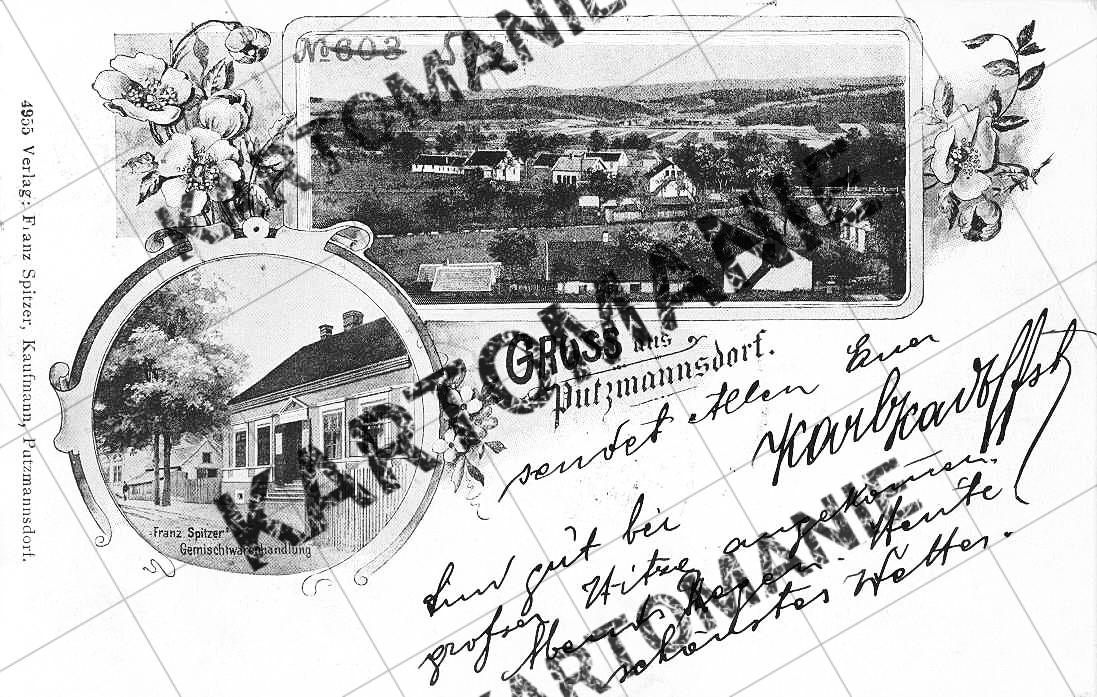 № 603
4955 Verlag: Franz Spitzer, Kaufmann, Putzmannsdorf.
Gruss aus
Putzmannsdorf.
Franz Spitzer
Gemischtwarenhandlung
sendet Allen Euer
Sind gut bei
großer Hitze angekommen.
Abends Regen. Heute
schönstes Wetter.
KARTOMANIE
KARTOMANIE
KARTOMANIE
KARTOMANIE